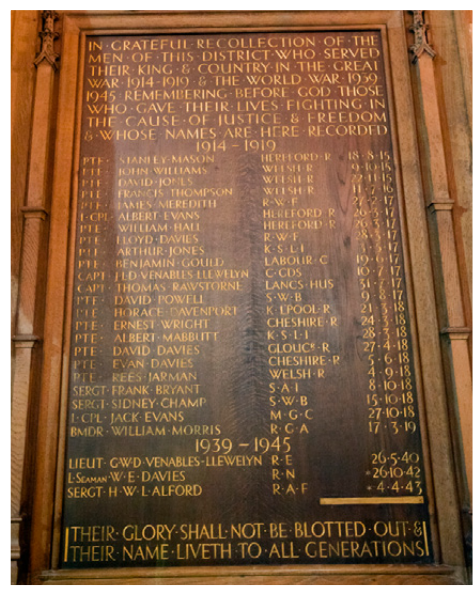 IN·GRATEFUL·RECOLLECTION·OF·THE
MEN·OF·THIS·DISTRICT·WHO·SERVED
THEIR·KING·&·COUNTRY·IN·THE·GREAT
WAR·1914-1919·&·THE·WORLD·WAR·1939
1945·REMEMBERING·BEFORE·GOD·THOSE
WHO·GAVE·THEIR·LIVES·FIGHTING·IN
THE·CAUSE·OF·JUSTICE·&·FREEDOM
&·WHOSE·NAMES·ARE·HERE·RECORDED
1914-1919
PTE· STANLEY·MASON HEREFORD·R 18·8·15
PTE· JOHN·WILLIAMS WELSH·R 9·10·15
PTE· DAVID·JONES WELSH·R 22·11·15
PTE· FRANCIS·THOMPSON WELSH·R 11·7·16
PTE· JAMES·MEREDITH R·W·F 27·2·17
L·CPL· ALBERT·EVANS HEREFORD·R 26·3·17
PTE· WILLIAM·HALL HEREFORD·R 26·3·17
PTE· LLOYD·DAVIES R·W·F
PTE· ARTHUR·JONES K·S·L·I
PTE· BENJAMIN·GOULD LABOUR·C 19·6·17
CAPT· J·E·D·VENABLES·LLEWELYN C·GDS 10·7·17
CAPT· THOMAS·RAWSTORNE LANCS·HUS 31·7·17
PTE· DAVID·POWELL S·W·B 9·8·17
PTE· HORACE·DAVENPORT K·LPOOL·R 21·3·18
PTE· ERNEST·WRIGHT CHESHIRE·R 24·3·18
PTE· ALBERT·MABBUTT K·S·L·I 28·3·18
PTE· DAVID·DAVIES GLOUCR·R 27·4·18
PTE· EVAN·DAVIES CHESHIRE·R 5·6·18
PTE· REES·JARMAN WELSH·R 4·9·18
SERGT·FRANK·BRYANT S·A·I 8·10·18
SERGT·SIDNEY·CHAMP S·W·B 15·10·18
L·CPL·JACK·EVANS M·G·C 27·10·18
BMDR·WILLIAM·MORRIS R·G·A 17·3·19
1939-1945
LIEUT·G·W·D·VENABLES-LLEWELYN R·E 26·5·40
L·SEAMAN·W·E·DAVIES R·N *26·10·42
SERGT·H·W·L·ALFORD R·A·F *4·4·43
THEIR·GLORY·SHALL·NOT·BE·BLOTTED·OUT·&
THEIR·NAME·LIVETH·TO·ALL·GENERATIONS